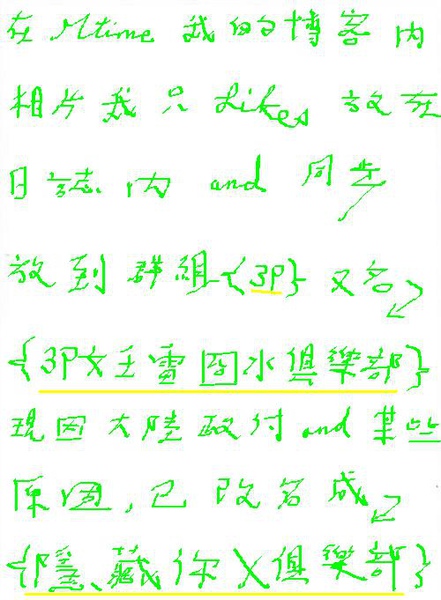 在 Mtime 我的博客內
相片我只 Likes 放在
日誌內 and 同步
放到群組{3P}又名
{3P女王雪囧水俱樂部}
現因大陸政付 and 某些
原因,已改名成
{隱藏你X俱樂部}